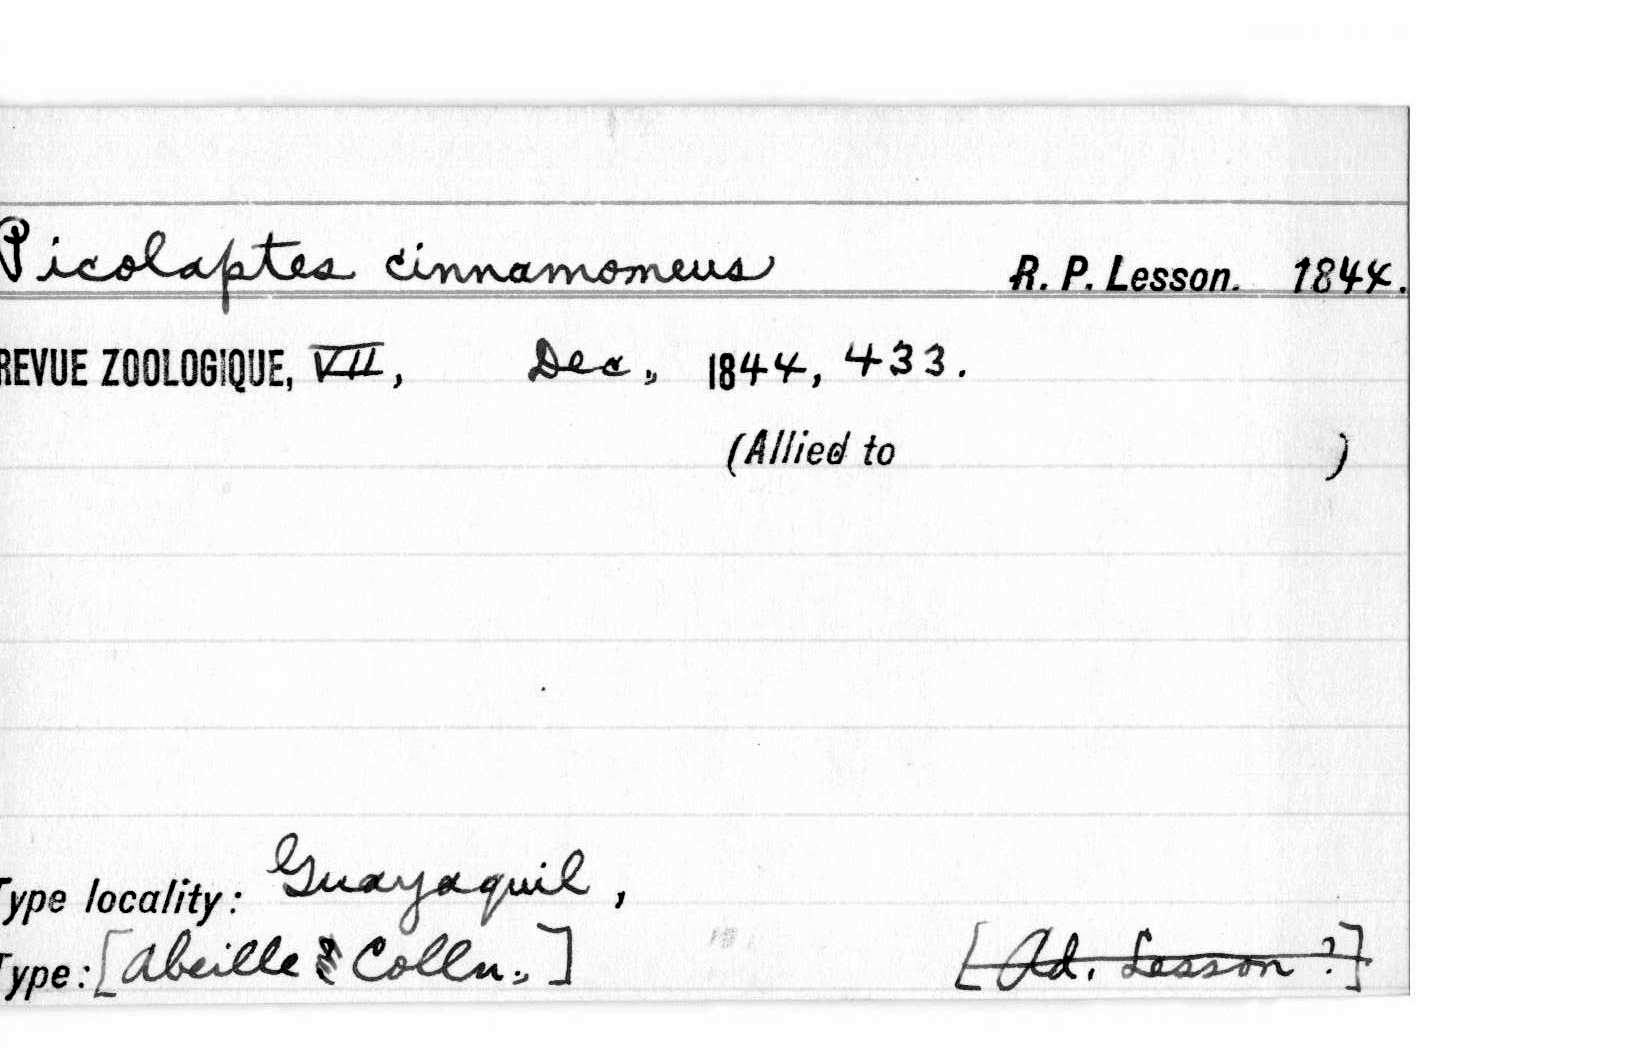 Picolaptes cinnamomeus R. P. Lesson. 1844.
REVUE ZOOLOGIQUE, VII, Dec., 1844, 433.
(Allied to )
Type locality: Guayaquil,
Type: [Abeille Colln.,] [Ad. Lesson ?]